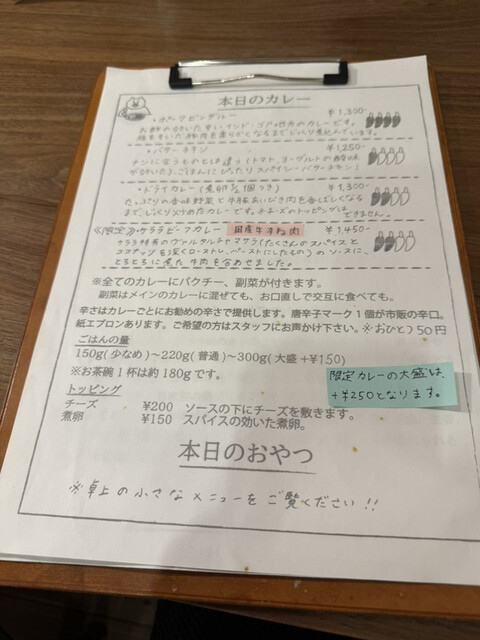 本日のカレー
・ポークビンダルー ¥1,300-
お酢の効いた辛いインド・ゴア地方のカレーです。
豚をまいた豚肉を柔らかくなるまでじっくり煮込んでいます。
・バターチキン ¥1,250-
ナンに合うものとは違う(トマト、ヨーグルトの酸味
が効いた)、ごはんにぴったりスパイシーバターチキン!
・ドライカレー(煮卵½個つき) ¥1,300-
たっぷりの香味野菜と牛豚あいびき肉を香ばしくなる
まで、じっくり炒めたカレーです。チーズのトッピングは
できません。
≪限定≫・ケララビーフカレー 国産牛すね肉 ¥1,450-
ケララ特有のヴァルタルチャマサラ(たくさんのスパイスと
ココナッツを深くローストし、ペーストにしたもの)のソースに、
とろとろに煮た牛肉を合わせました。
※全てのカレーにパクチー、副菜が付きます。
副菜はメインのカレーに混ぜても、お口直しで交互に食べても。
辛さはカレーごとにお勧めの辛さで提供します。唐辛子マーク1個が市販の辛口。
紙エプロンあります。ご希望の方はスタッフにお声かけ下さい。※おひとつ50円
ごはんの量
150g(少なめ)~220g(普通)~300g(大盛+¥150)
※お茶碗1杯は約180gです。
限定カレーの大盛は、
+¥250となります。
トッピング
チーズ ¥200 ソースの下にチーズを敷きます。
煮卵 ¥150 スパイスの効いた煮卵。
本日のおやつ
※卓上の小さなメニューをご覧ください!!